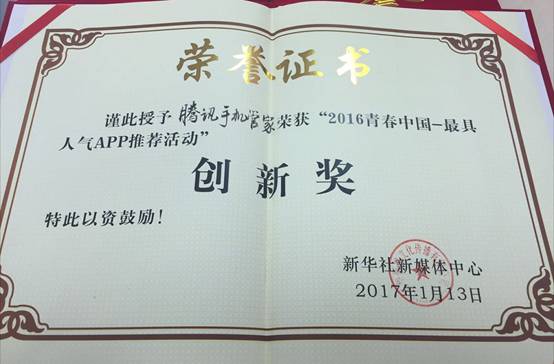 荣誉证书
谨此授予 腾讯手机管家荣获“2016青春中国-最具
人气APP推荐活动”
创新奖
特此以资鼓励!
新华社新媒体中心
2017年1月13日